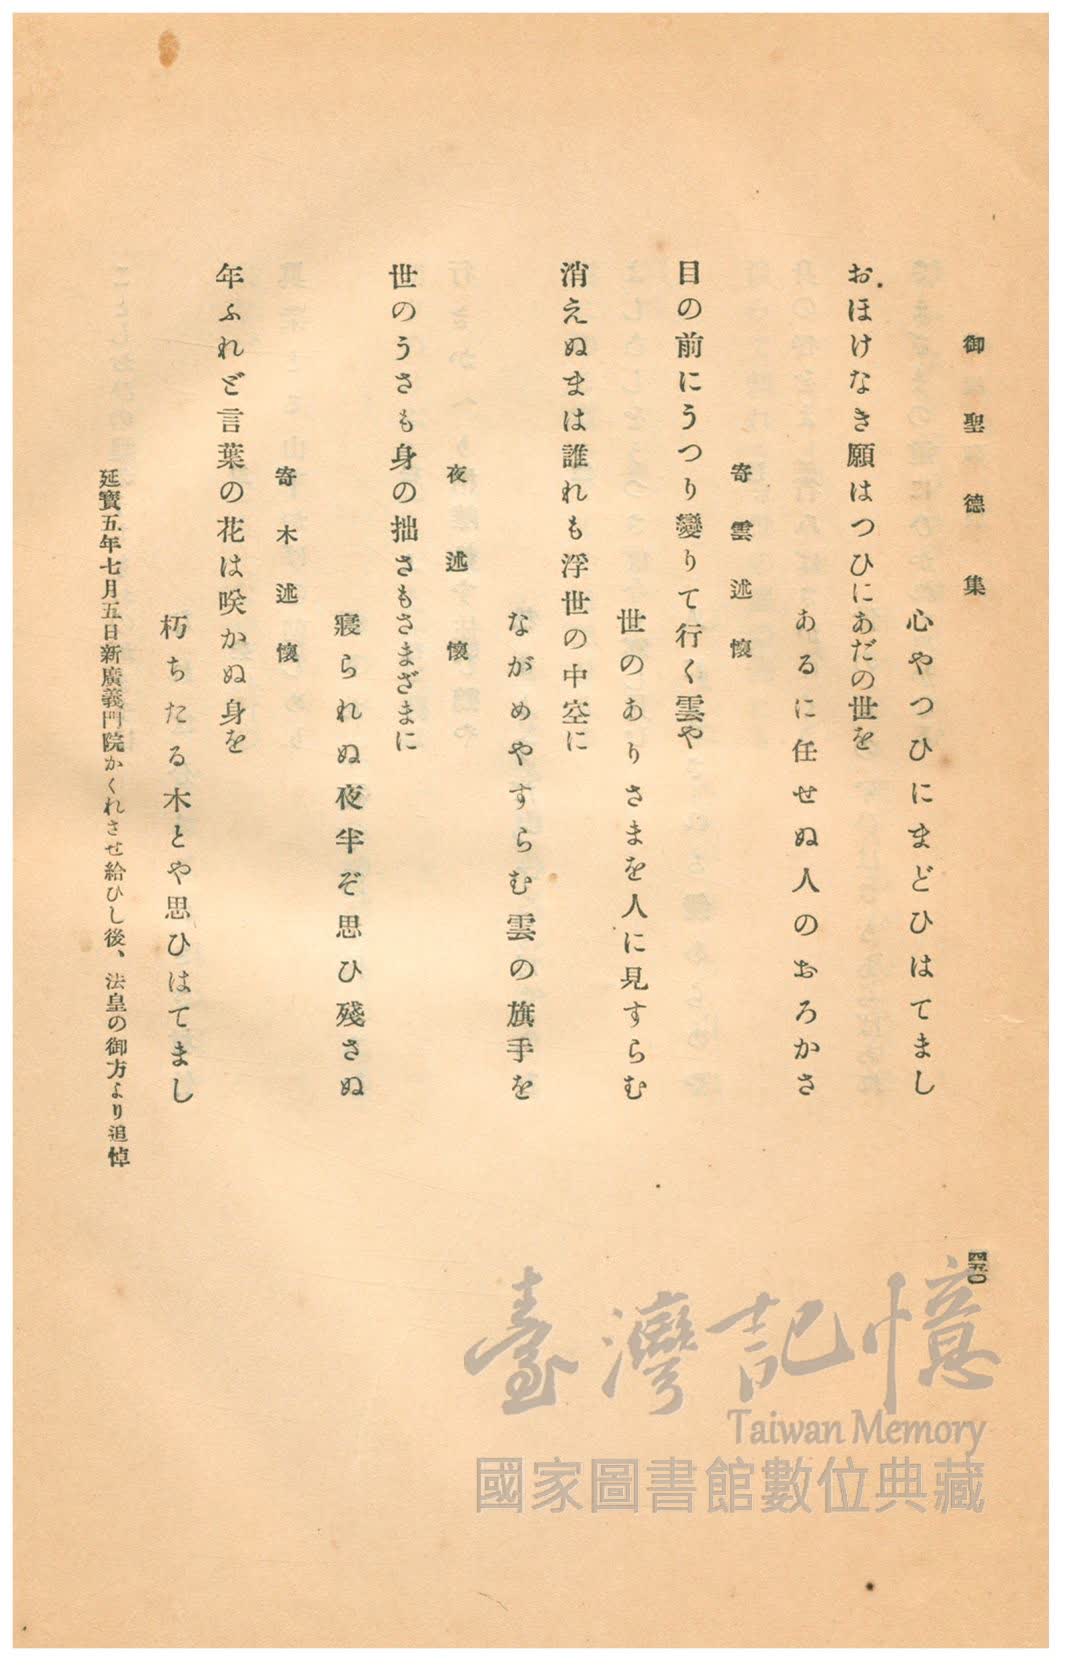 御聖德集
心やつひにまどひはてまし
おほけなき願はつひにあだの世を
あるに任せぬ人のおろかさ
寄雲述懷
目の前にうつり變りて行く雲や
世のありさまを人に見すらむ
消えぬまは誰れも浮世の中空に
ながめやすらむ雲の旗手を
夜述懷
世のうさも身の拙さもさまざまに
寢られぬ夜半ぞ思ひ殘さぬ
寄木述懷
年ふれど言葉の花は咲かぬ身を
朽ちたる木とや思ひはてまし
延寶五年七月五日新廣義門院かくれさせ給ひし後、法皇の御方より追悼
四五〇
臺灣記憶
Taiwan Memory
國家圖書館數位典藏